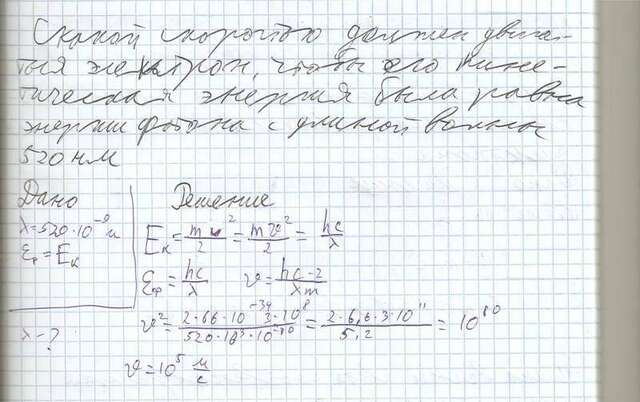 С какой скоростью должен двига-
ться электрон, чтобы его кине-
тическая энергия была равна
энергии фотона с длиной волны
520 нм
Дано
Решение
λ=520·10⁻⁹м
εφ=Eк
λ-?
Eк = mv²/2 = mv²/2 = hc/λ
εφ = hc/λ v = hc·2/λm
v² = 2·66·10⁻³⁴·3·10⁸/520·10³·10⁻¹⁰ = 2·6,6·3·10¹¹/5,2 = 10¹⁰
v = 10⁵ м/с